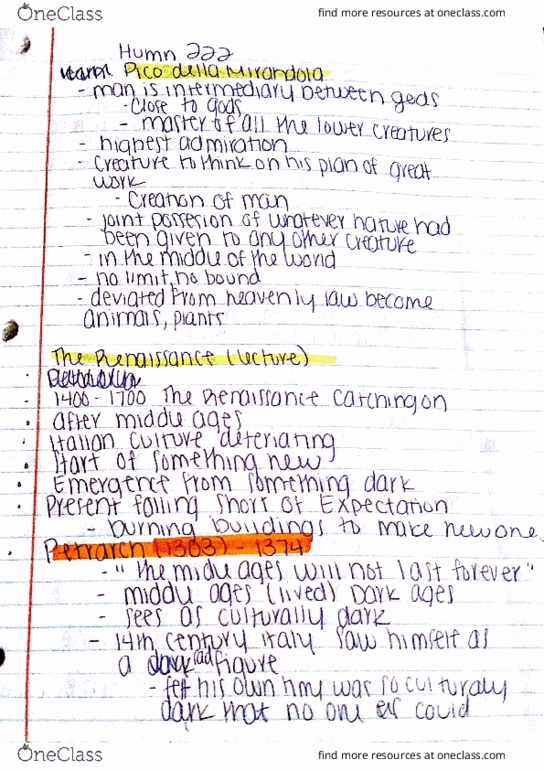 OneClass
find more resources at oneclass.com
Humn 222
Pico della Mirandola
- man is intermediary between gods
- close to gods
- master of all the lower creatures
- highest admiration
- creature to think on his plan of great
work
- Creation of man
- joint possesion of whatever nature had
been given to any other creature
- in the middle of the world
- no limit, no bound
- deviated from heavenly law become
animals, plants
The Renaissance (lecture)
1400 - 1700 The Renaissance catching on
after middle ages
Italian culture deteriating
Start of something new
Emergence from something dark
Present falling short of Expectation
- burning buildings to make new one
Petrarch (1303) - 1374
- "the midle ages will not last forever"
- middle ages (lived) Dark ages
- sees as culturally dark
- 14th century Italy saw himself as
a dark figure
- felt his own time was so culturaly
dark that no one could
OneClass
find more resources at oneclass.com